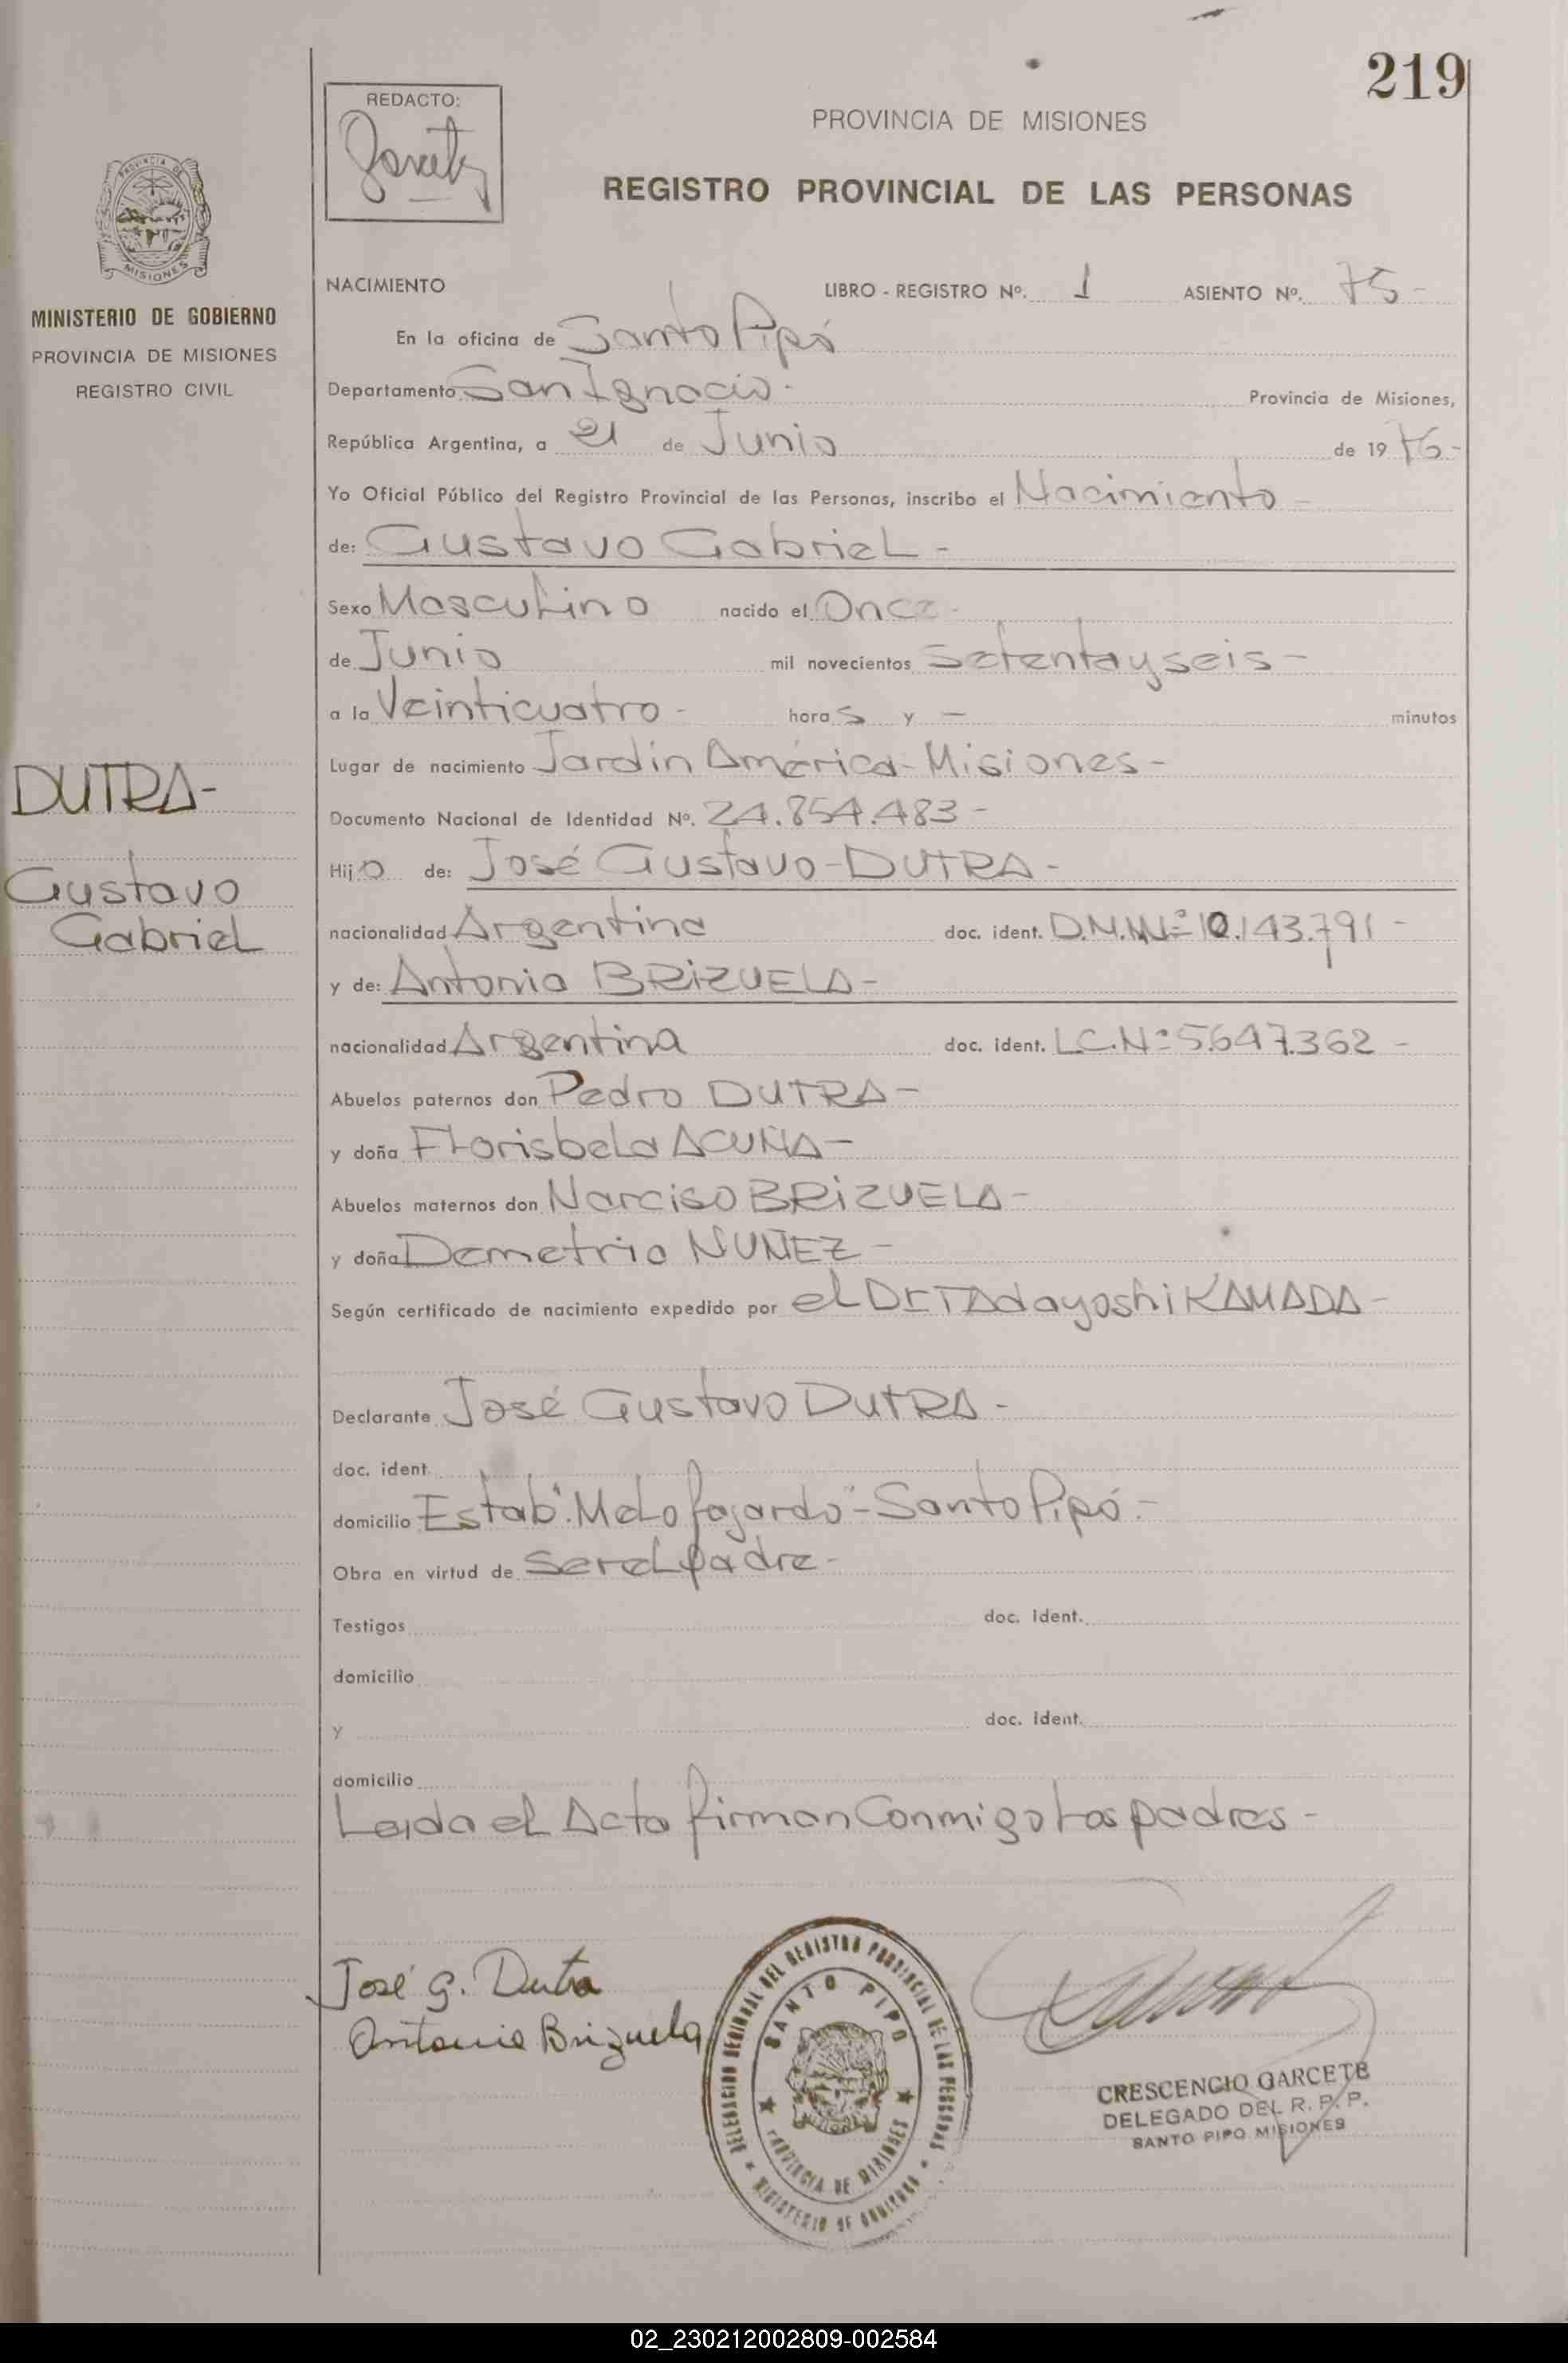 219
REDACTO:
PROVINCIA DE MISIONES
REGISTRO PROVINCIAL DE LAS PERSONAS
PROVINCIA DE
MISIONES
MINISTERIO DE GOBIERNO
PROVINCIA DE MISIONES
REGISTRO CIVIL
NACIMIENTO LIBRO - REGISTRO Nº. 1 ASIENTO Nº. 75 -
En la oficina de Santo Pipó
Departamento San Ignacio - Provincia de Misiones,
República Argentina, a 21 de Junio de 1976 -
Yo Oficial Público del Registro Provincial de las Personas, inscribo el Nacimiento -
de: Gustavo Gabriel -
Sexo Masculino nacido el Once -
de Junio mil novecientos Setentayseis -
a la Veinticuatro - horas y - minutos
Lugar de nacimiento Jardín América - Misiones -
Documento Nacional de Identidad Nº. 24.854.483 -
Hijo de: José Gustavo - DUTRA -
nacionalidad Argentina doc. ident. 10.143.791 -
y de: Antonia BRIZUELA -
nacionalidad Argentina doc. ident. L.C.Nº 5.647.362 -
Abuelos paternos don Pedro DUTRA -
y doña Florisbela ACUÑA -
Abuelos maternos don Narciso BRIZUELA -
y doña Demetria NUÑEZ -
Según certificado de nacimiento expedido por el Dr TAdayoshi KAMADA -
Declarante José Gustavo DUTRA -
doc. ident.
domicilio Estab. "Melo fajardo" - Santo Pipó. -
Obra en virtud de ser el padre -
Testigos doc. ident.
domicilio
y doc. ident.
domicilio
Leida el Acta firman Conmigo Los padres -
DUTRA -
Gustavo
Gabriel
José G. Dutra
Antonia Brizuela
DELEGACION REGIONAL DEL REGISTRO PROVINCIAL DE LAS PERSONAS
SANTO PIPO
PROVINCIA DE MISIONES
MINISTERIO DE GOBIERNO
CRESCENCIO GARCETE
DELEGADO DEL R. P. P.
SANTO PIPO MISIONES
02_230212002809-002584